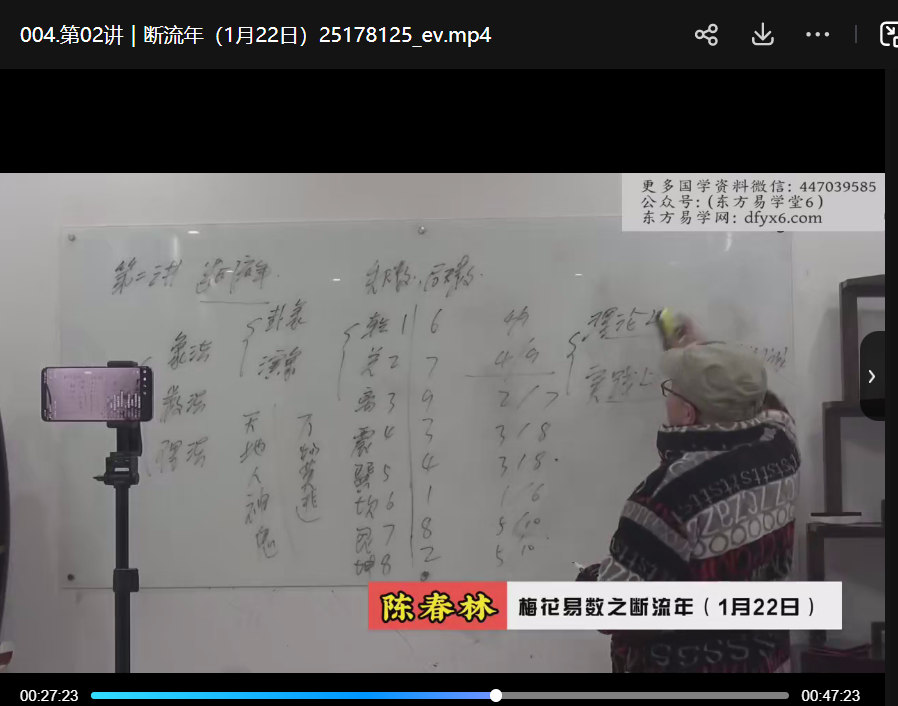 004.第02讲 | 断流年（1月22日）25178125_ev.mp4
更多国学资料微信: 447039585
公众号: (东方易学堂6)
东方易学网: dfyx6.com
第二讲
先天数.后天数.
卦象
乾 1 6
象法
兑 2 7 4 9
理论上
演象
数法
离 3 9 2/7
实践上
理法
震 4 3 3/8
巽 5 4 3/8.
坎 6 1 1/6
艮 7 8 5/10
坤 8 2 5/10.
天地人神鬼
万物类
陈春林 梅花易数之断流年（1月22日）
00:27:23 00:47:23